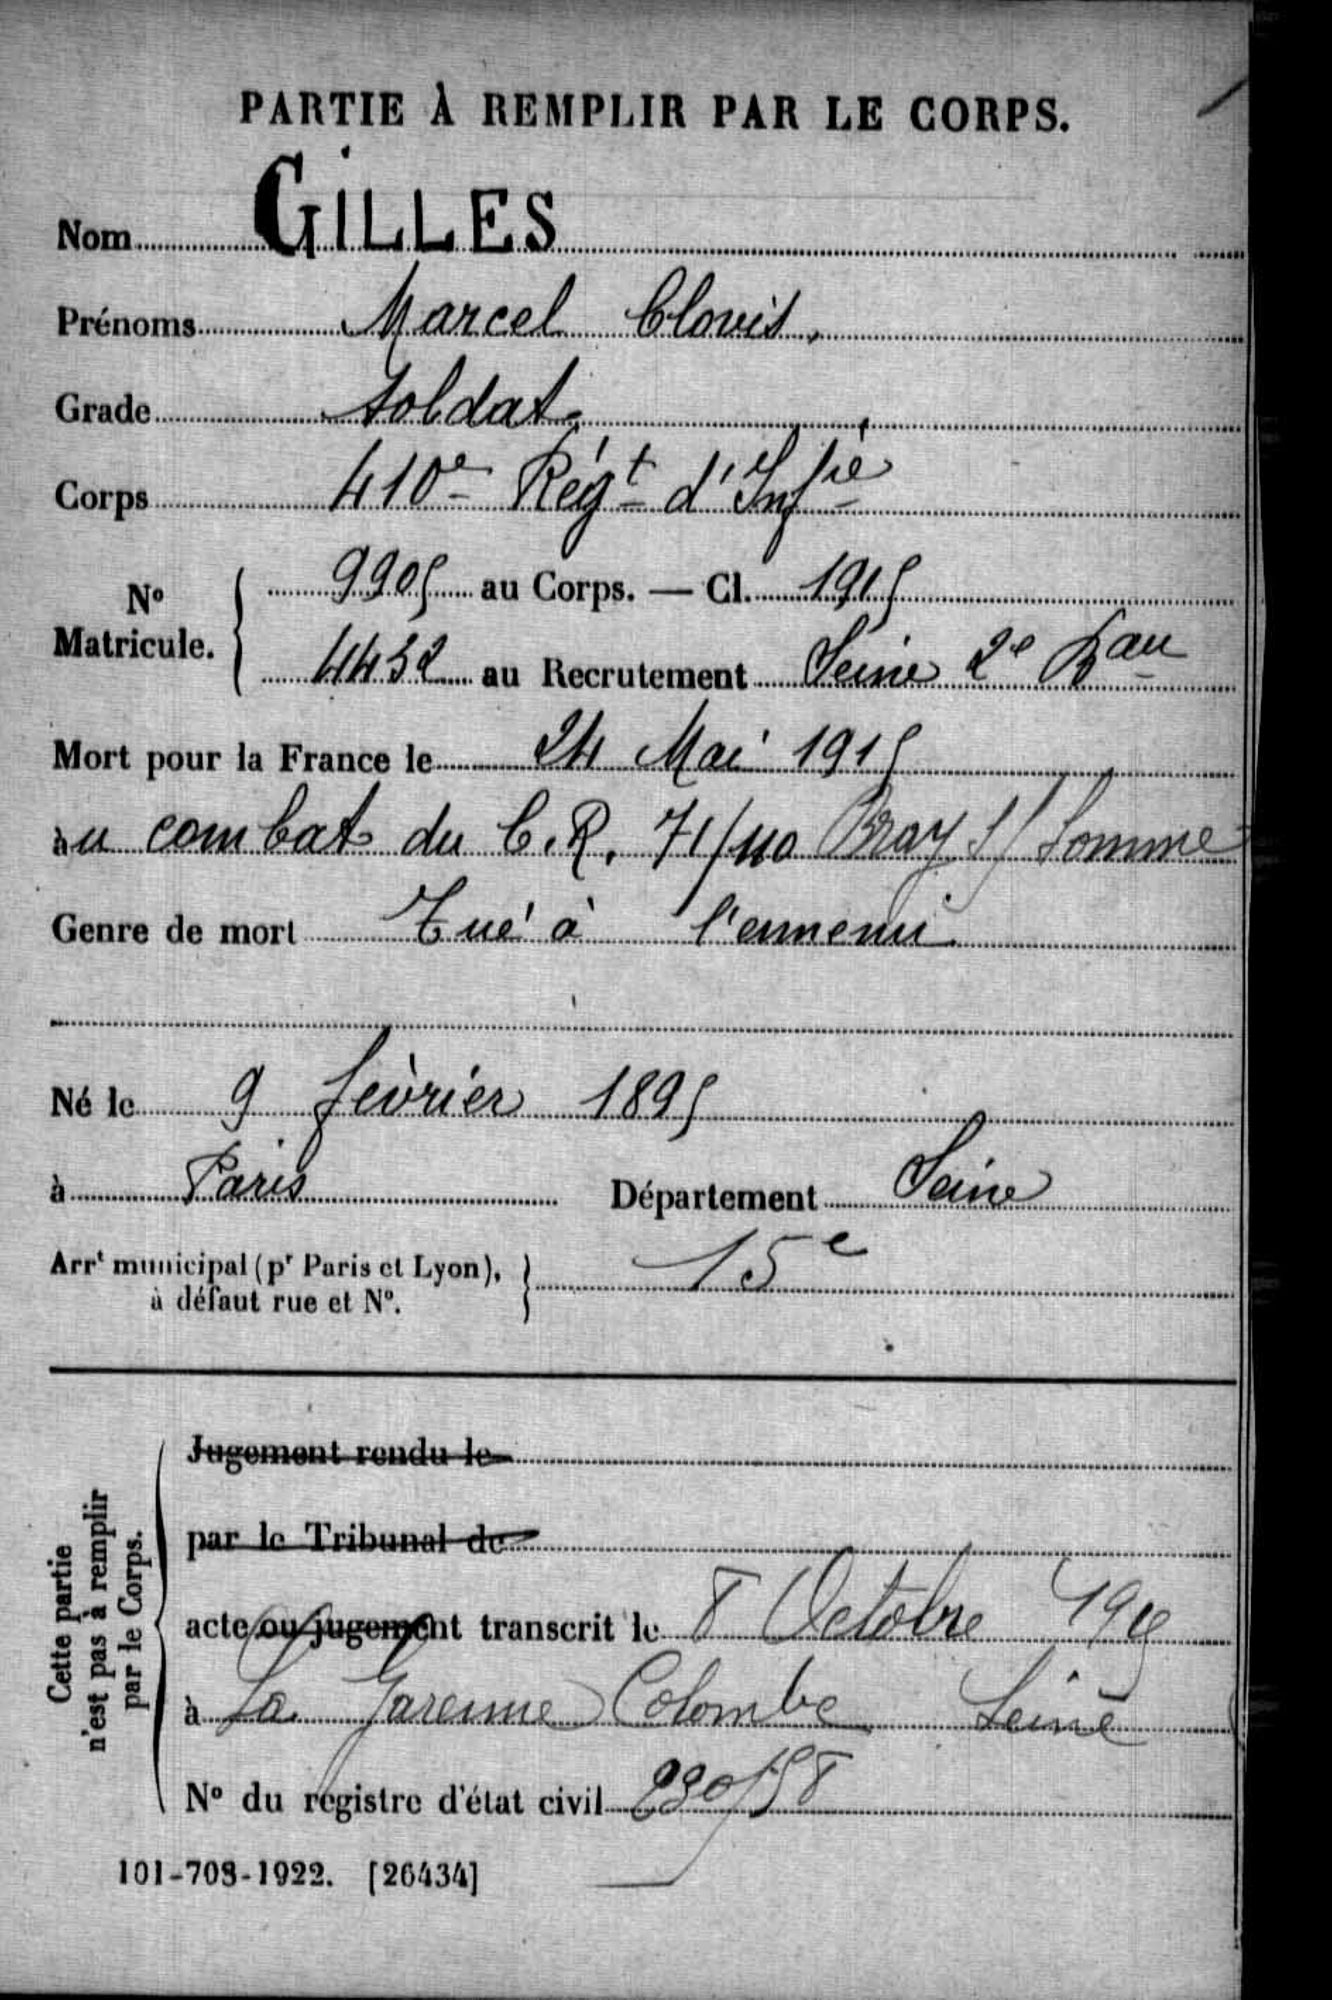 PARTIE À REMPLIR PAR LE CORPS.
Nom GILLES
Prénoms Marcel Clovis,
Grade Soldat
Corps 410e Régt d'Infie
No Matricule. { 9905 au Corps. — Cl. 1915
4432 au Recrutement Seine 2e Bau
Mort pour la France le 24 Mai 1915
au combat du C.R. 71/110 Bray s/ Somme
Genre de mort Tué à l'ennemi
Né le 9 février 1895
à Paris Département Seine
Arrt municipal (pr Paris et Lyon), à défaut rue et No. } 15e
Cette partie n'est pas à remplir par le Corps.
Jugement rendu le
par le Tribunal de
acte ou jugement transcrit le 8 Octobre
à La Garenne Colombe Seine
No du registre d'état civil
101-708-1922. [26434]